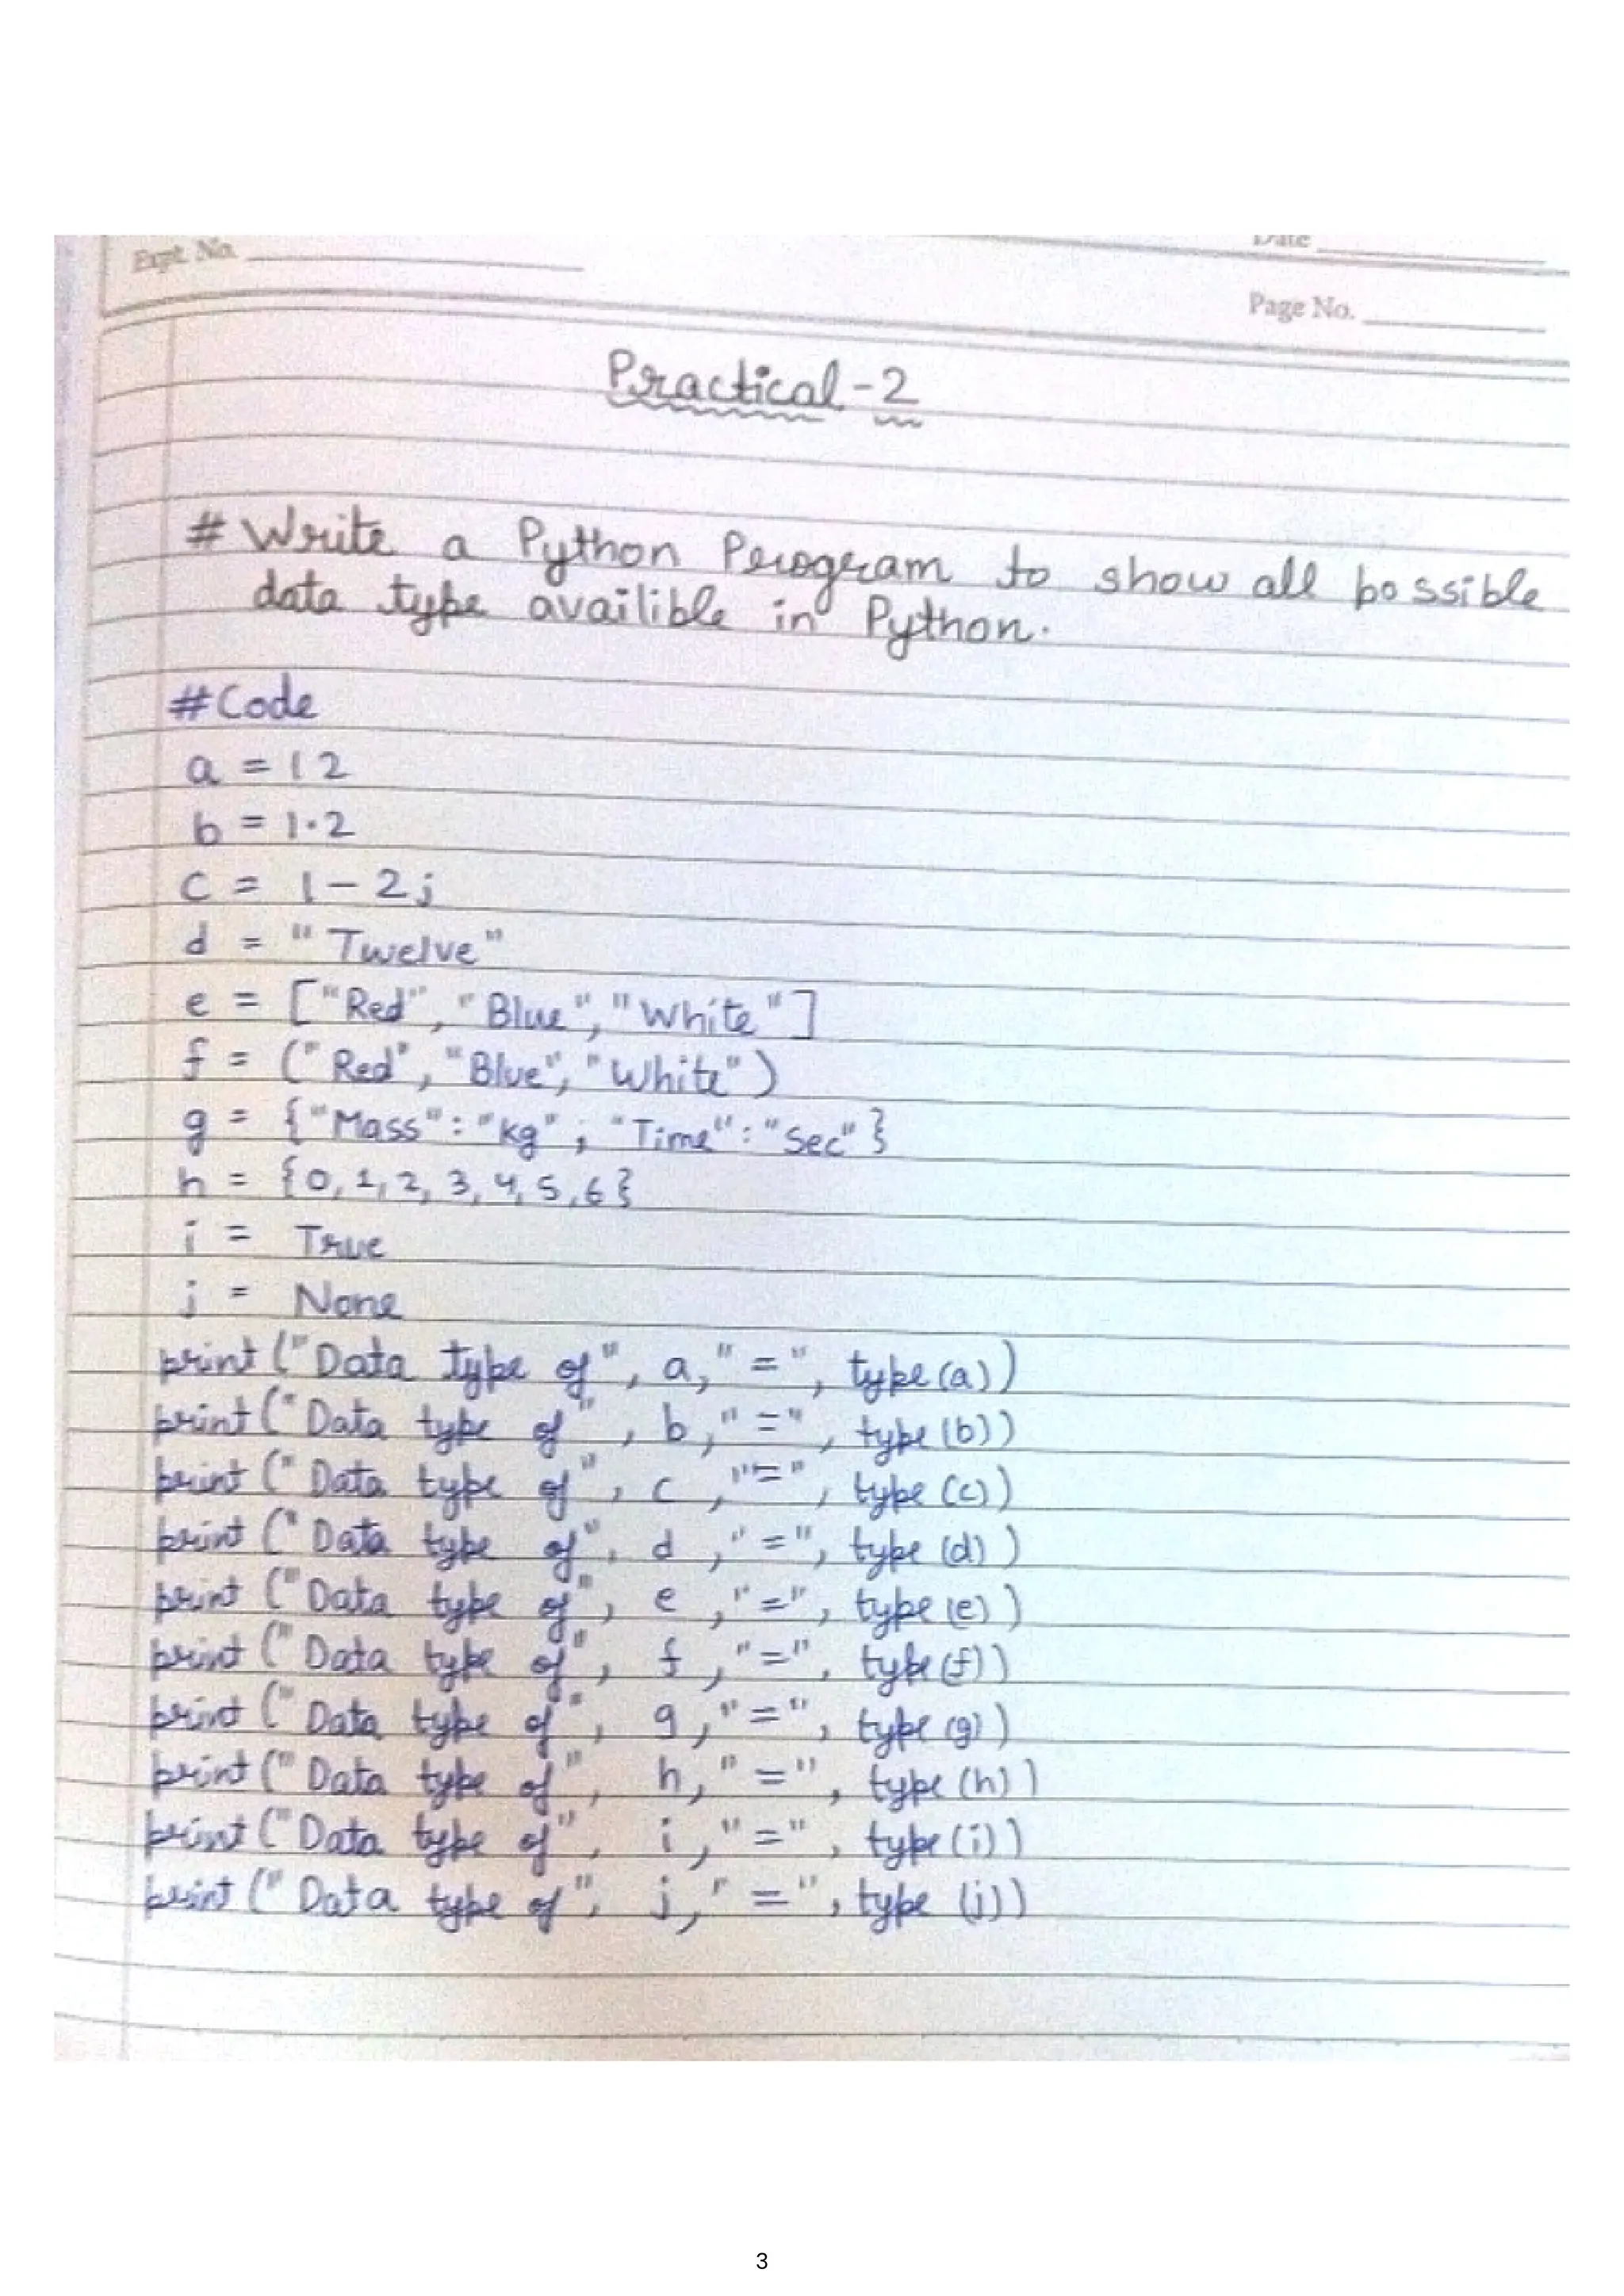 Expt. No.
Date
Page No.
Practical-2
# Write a Python Program to show all possible
data type availible in Python.
#Code
a = 12
b = 1.2
c = 1-2j
d = "Twelve"
e = ["Red", "Blue", "White"]
f = ("Red", "Blue", "White")
g = {"Mass":"kg", "Time":"Sec"}
h = {0,1,2,3,4,5,6}
i = True
j = None
print ("Data type of", a,"=", type(a))
print ("Data type of", b,"=", type(b))
print ("Data type of", c,"=", type(c))
print ("Data type of", d,"=", type(d))
print ("Data type of", e,"=", type(e))
print ("Data type of", f,"=", type(f))
print ("Data type of", g,"=", type(g))
print ("Data type of", h,"=", type(h))
print ("Data type of", i,"=", type(i))
print ("Data type of", j,"=", type(j))
3